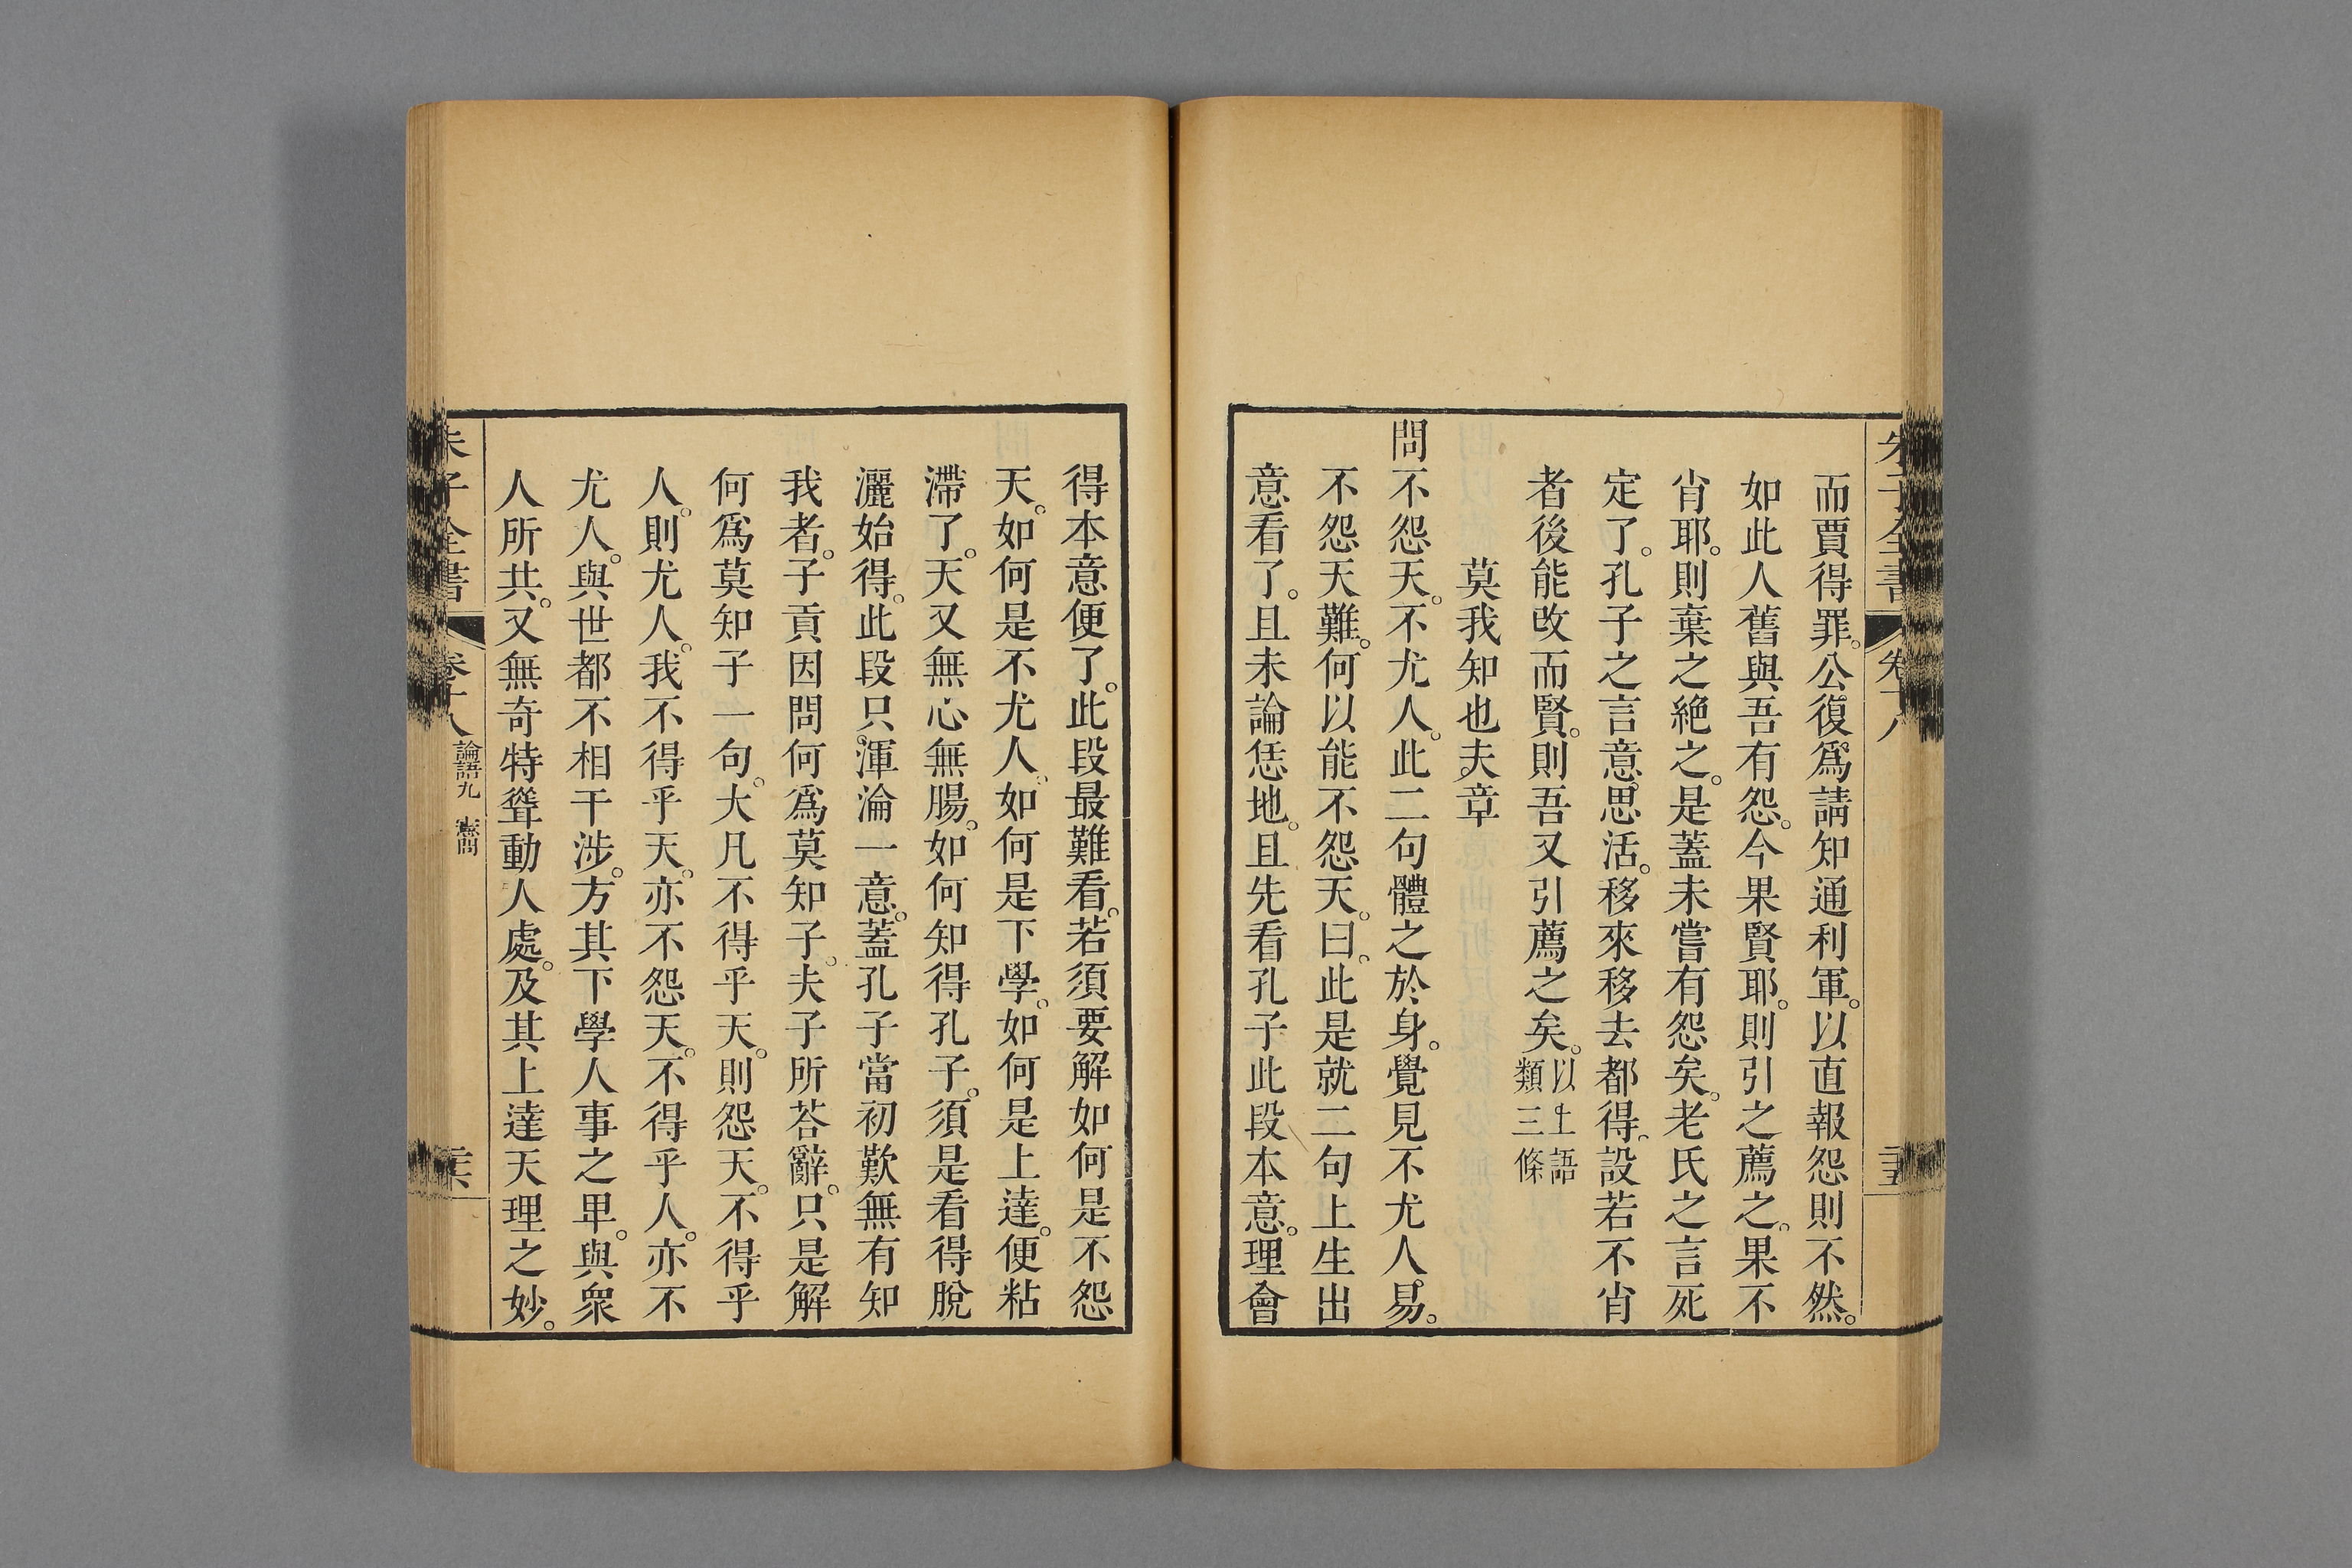 而賈得罪。公復爲請知通利軍。以直報怨則不然。
如此人舊與吾有怨。今果賢耶。則引之薦之。果不
肖耶。則棄之絕之。是蓋未嘗有怨矣。老氏之言死
定了。孔子之言意思活。移來移去都得。設若不肖
者後能改而賢。則吾又引薦之矣。以上語類三條
莫我知也夫章
問不怨天。不尤人。此二句體之於身。覺見不尤人易。
不怨天難。何以能不怨天。曰。此是就二句上生出
意看了。且未論恁地。且先看孔子此段本意。理會
得本意便了。此段最難看。若須要解如何是不怨
天。如何是不尤人。如何是下學。如何是上達。便粘
滯了。天又無心無腸。如何知得孔子。須是看得脫
灑始得。此段只。渾淪一意。蓋孔子當初歎無有知
我者。子貢因問何爲莫知子。夫子所荅辭。只是解
何爲莫知子一句。大凡不得乎天。則怨天。不得乎
人。則尤人。我不得乎天。亦不怨天。不得乎人。亦不
尤人。與世都不相干涉。方其下學人事之卑。與衆
人所共。又無奇特聳動人處。及其上達天理之妙。
朱子全書 卷十八 論語九 憲問